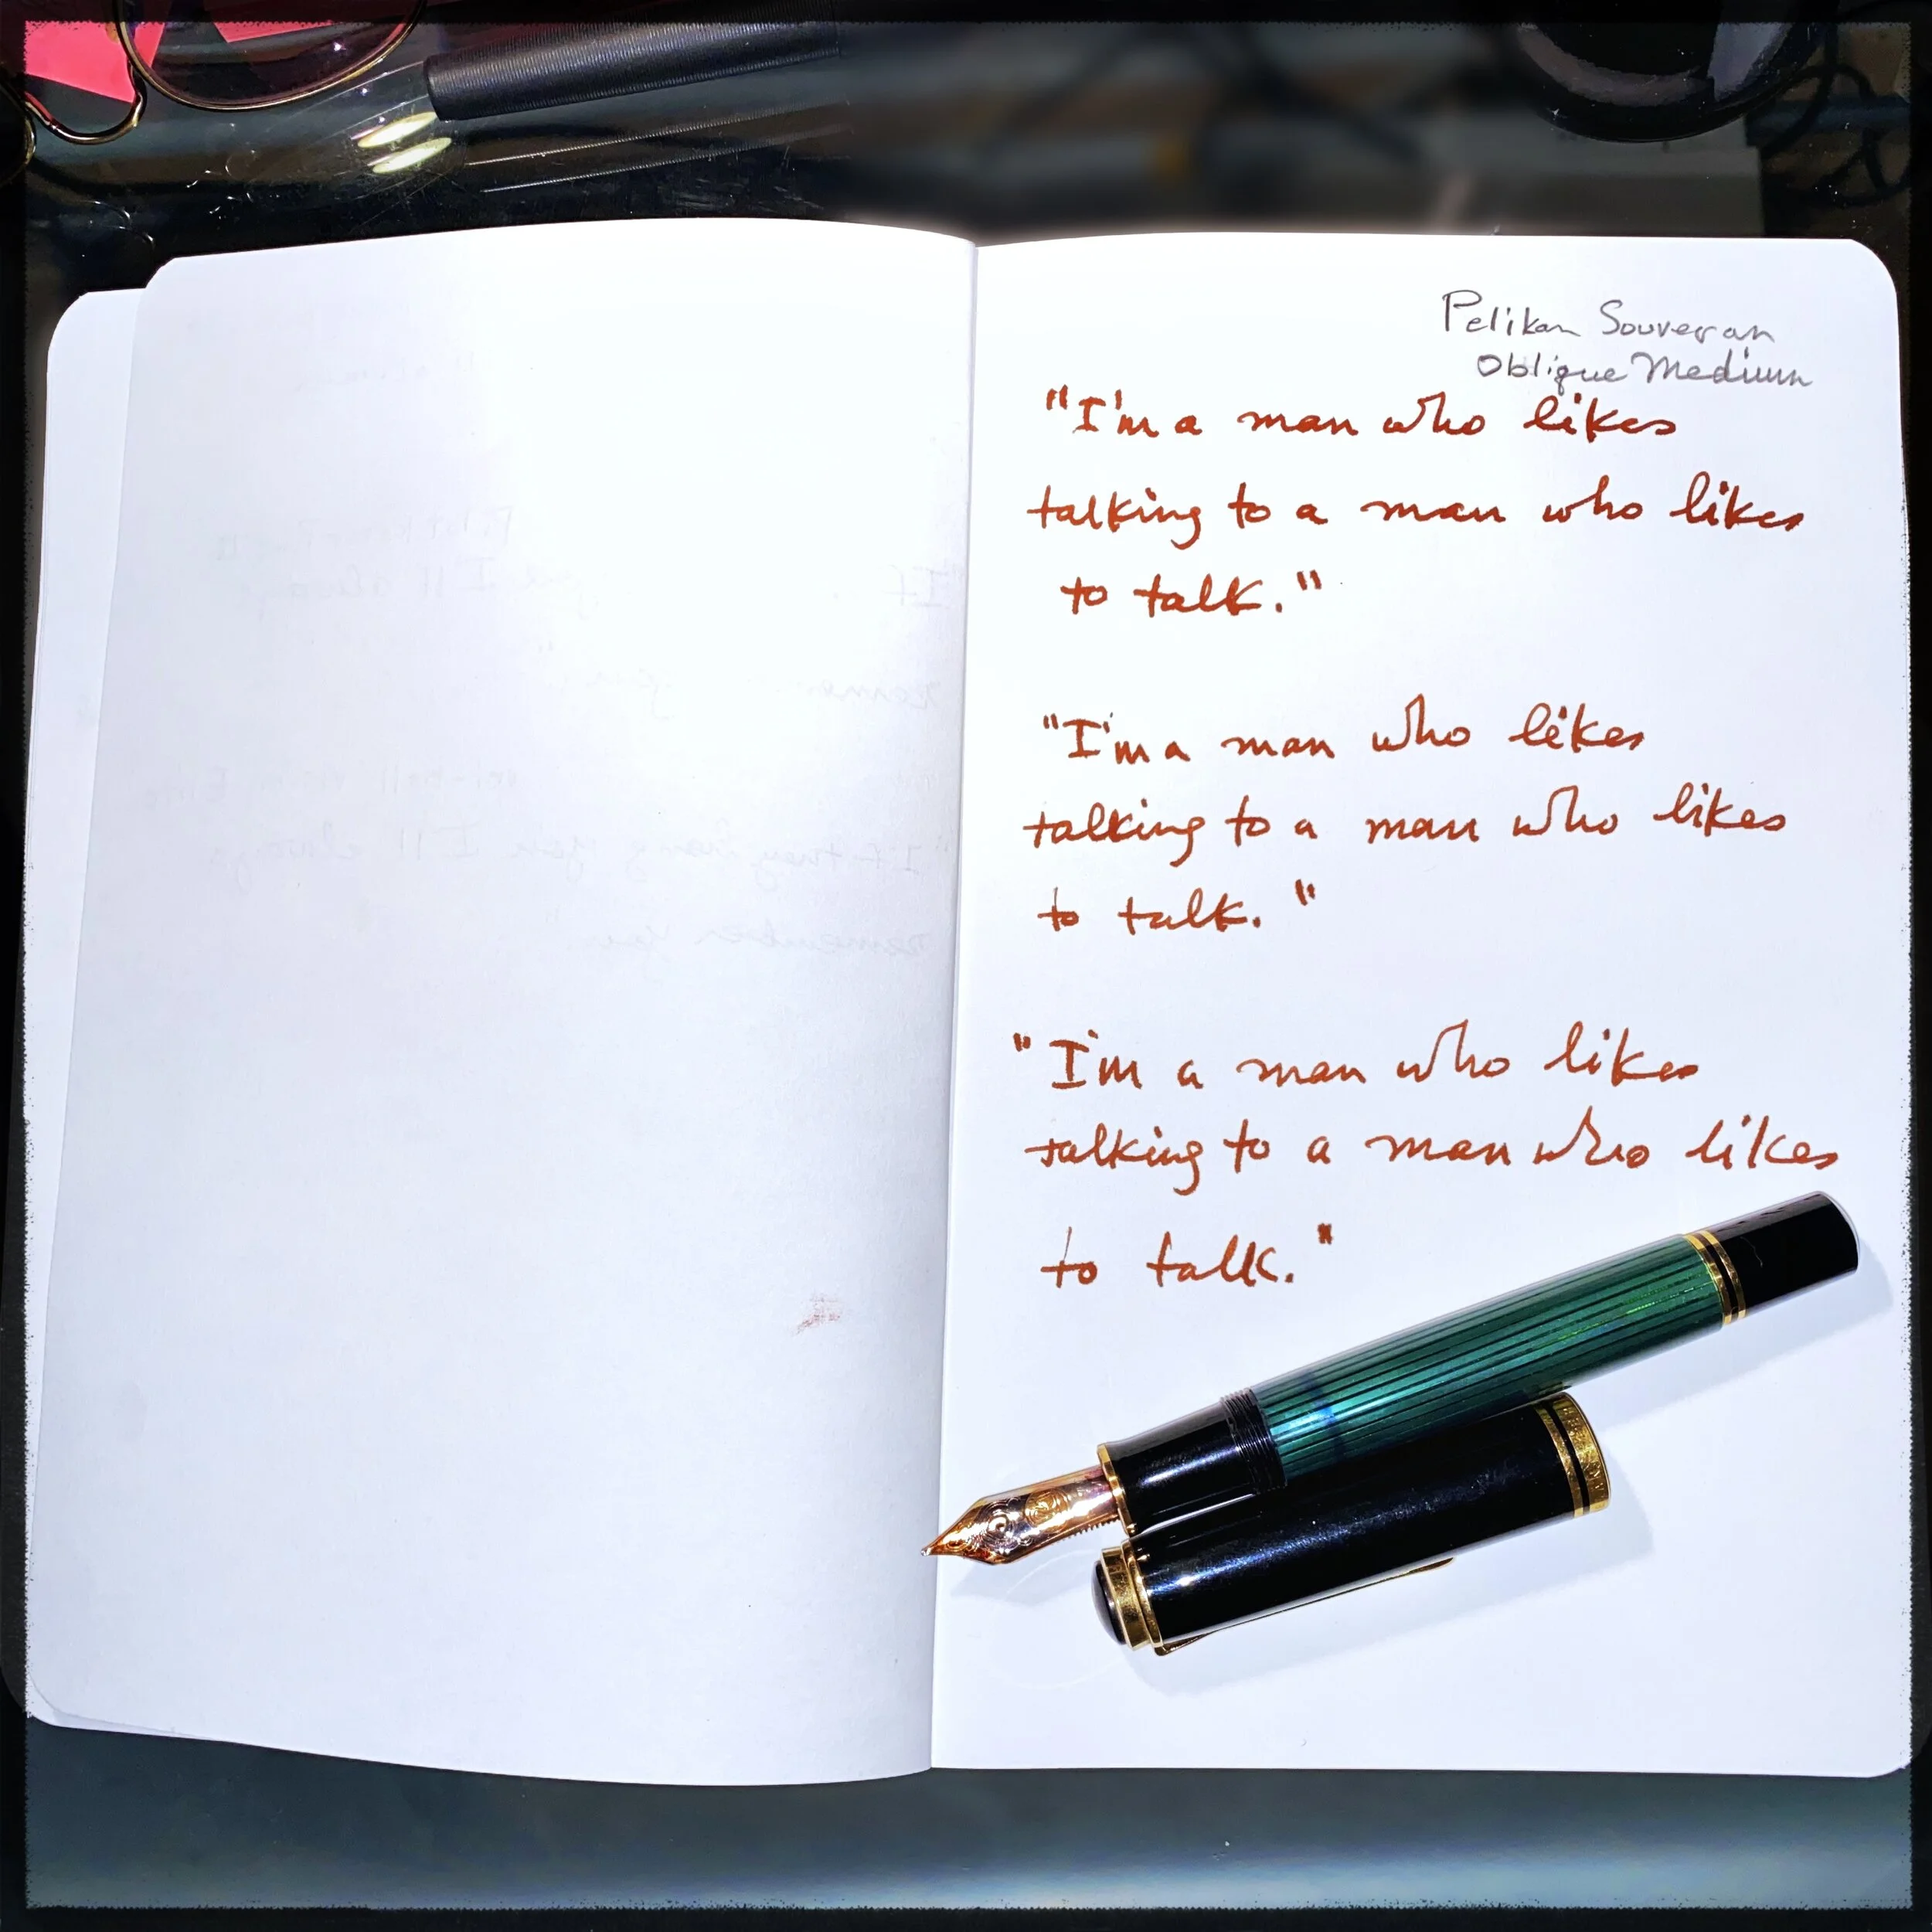 Pelikan Souveran
Oblique Medium
"I'm a man who likes
talking to a man who likes
to talk."
"I'm a man who likes
talking to a man who likes
to talk."
"I'm a man who likes
talking to a man who likes
to talk."